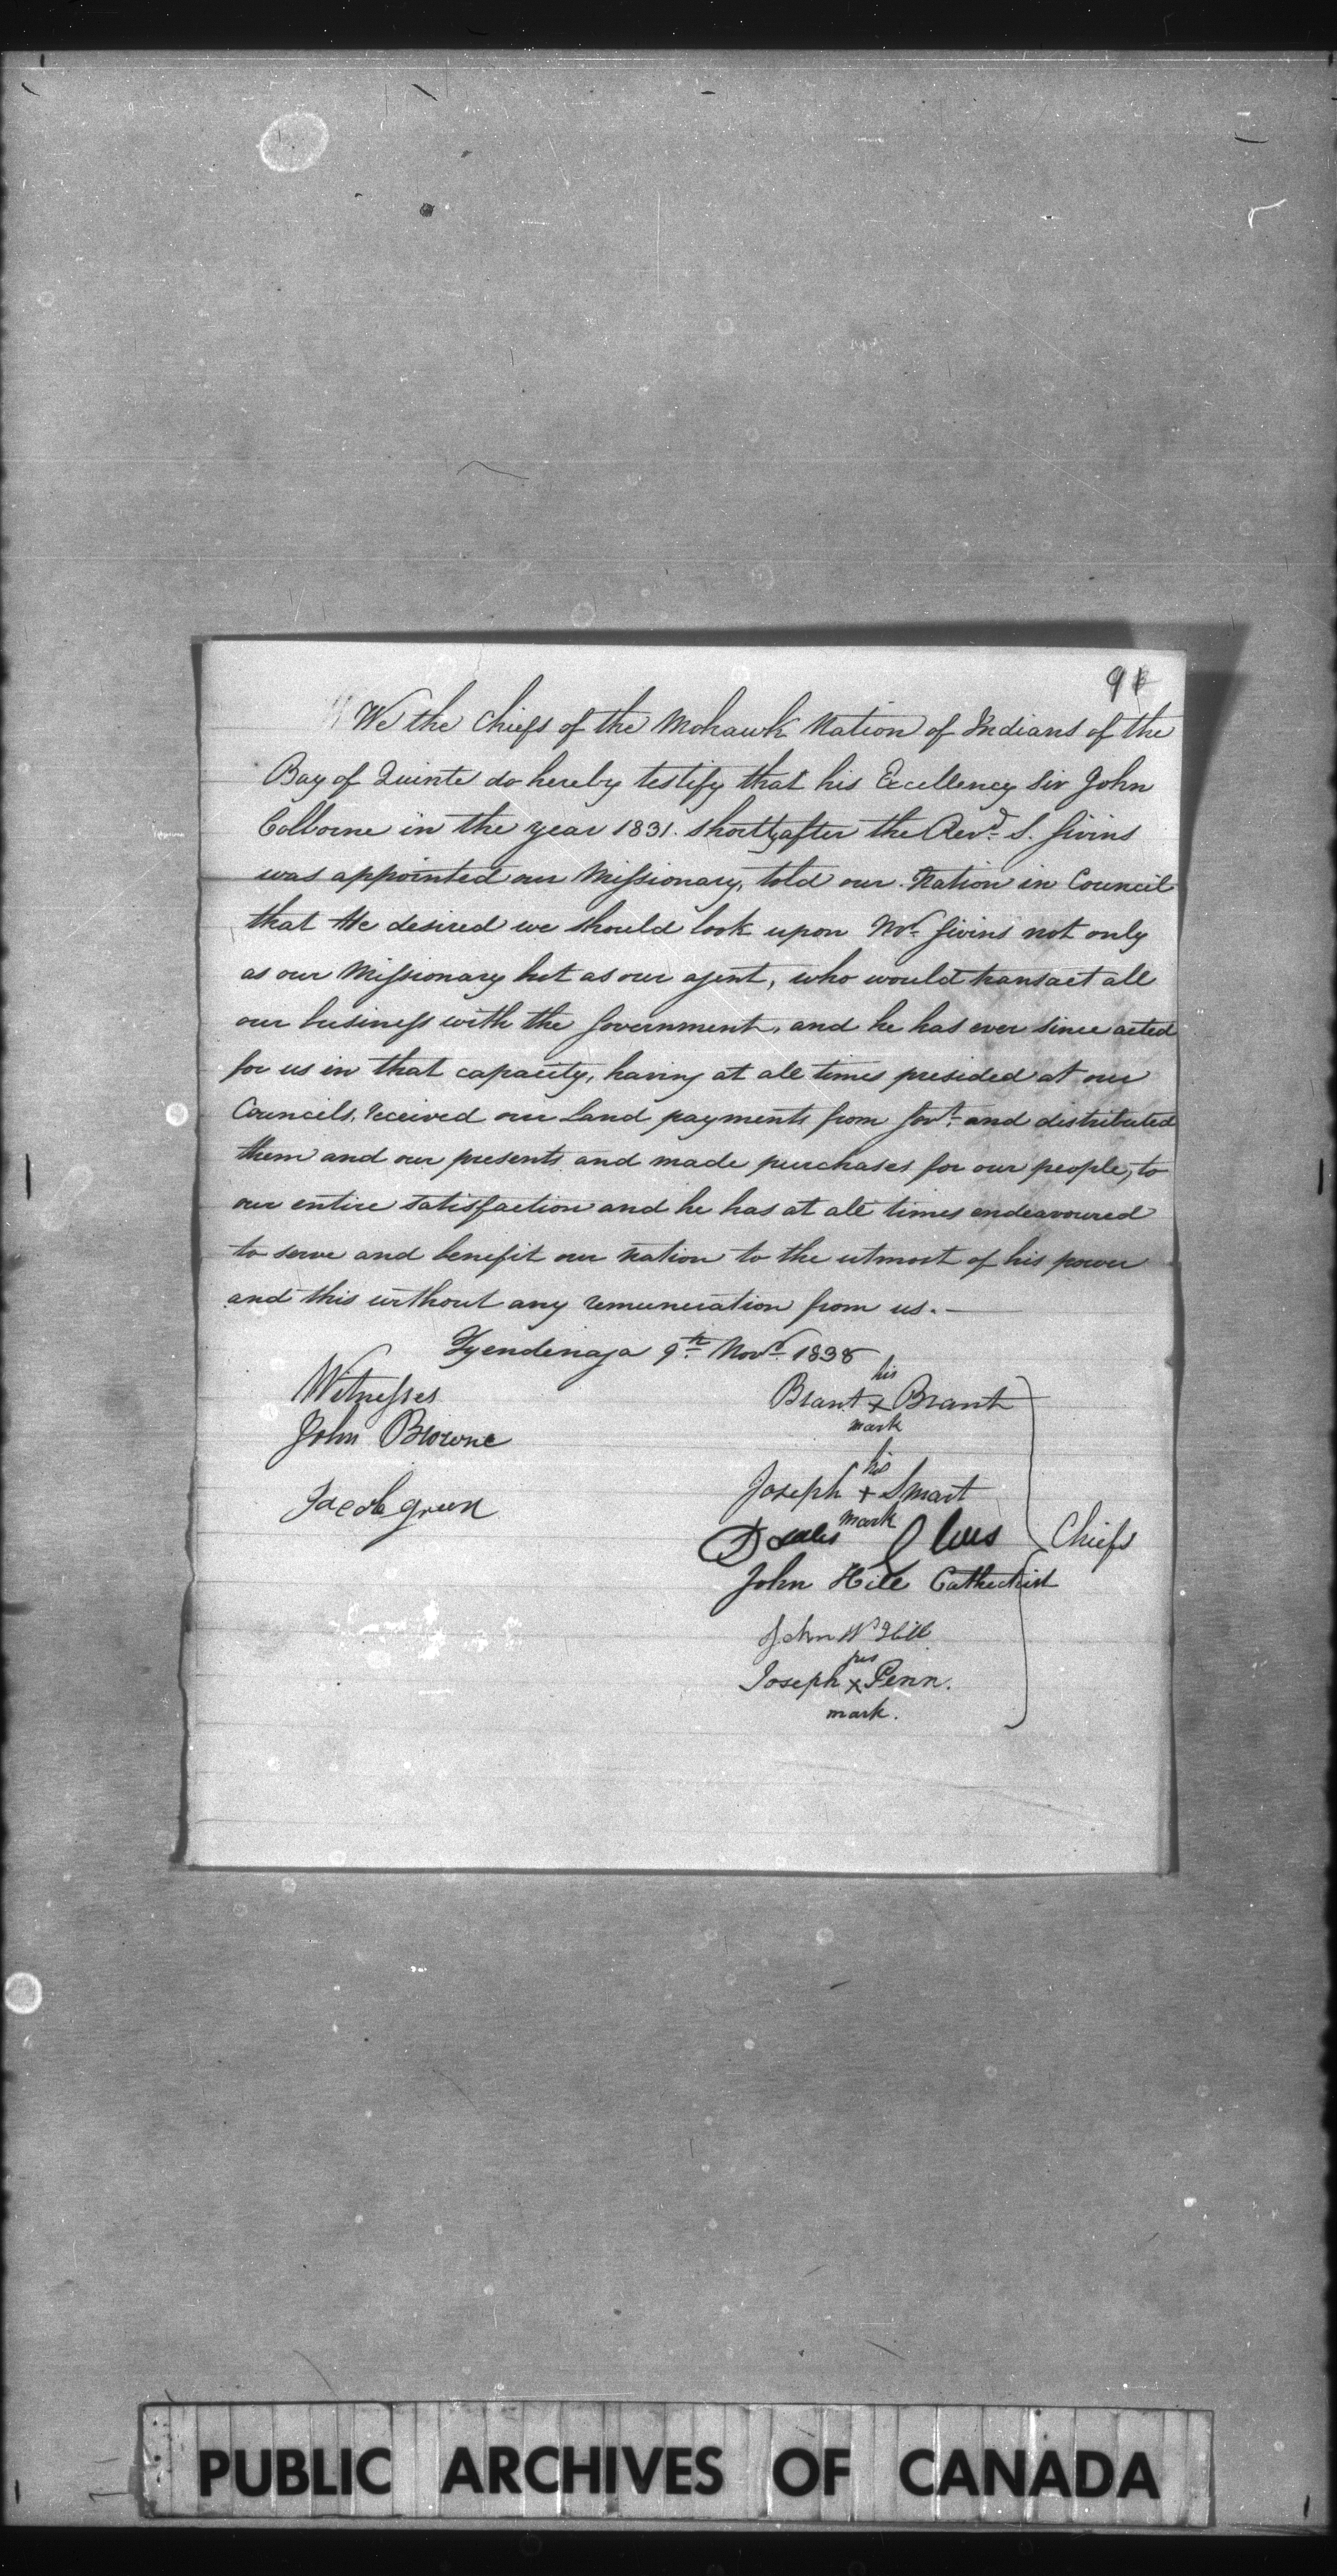 91
We the Chiefs of the Mohawk Nation of Indians of the
Bay of Quinte do hereby testify that his Excellency Sir John
Colborne in the year 1831. shortly after the Revd. S. Givins
was appointed our Missionary, told our Nation in Council
that He desired we should look upon Mr. Givins not only
as our Missionary but as our agent, who would transact all
our business with the Government, and he has ever since acted
for us in that capacity, having at all times presided at our
Councils, received our Land payments from Govt. and distributed
them and our presents and made purchases for our people, to
our entire satisfaction and he has at all times endeavoured
to serve and benefit our nation to the utmost of his power
and this without any remuneration from us. —
Tyendinaga 9th Novr. 1838
Witnesses
John Browne
Jacob green
his
Brant x Brant
mark
his
Joseph + Smart
mark
Chiefs
John Hill Cathechist
John W Hill
his
Joseph x Penn.
mark.
PUBLIC ARCHIVES OF CANADA